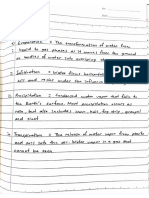 Evaporation = The transformation of water from
liquid to gas phases as it moves from the ground
or bodies of water into overlying atmosphere
Infiltration = Water flows horizontally
soil and rocks under the influence of
Precipitation = Condensed water vapor that falls to
the Earth's surface. Most precipitation occurs as
rain, but also includes snow, hail, fog drip, graupel,
and sleet
Transpiration = The release of water vapor from plants
and soil into the air. Water vapor is a gas that
cannot be seen.